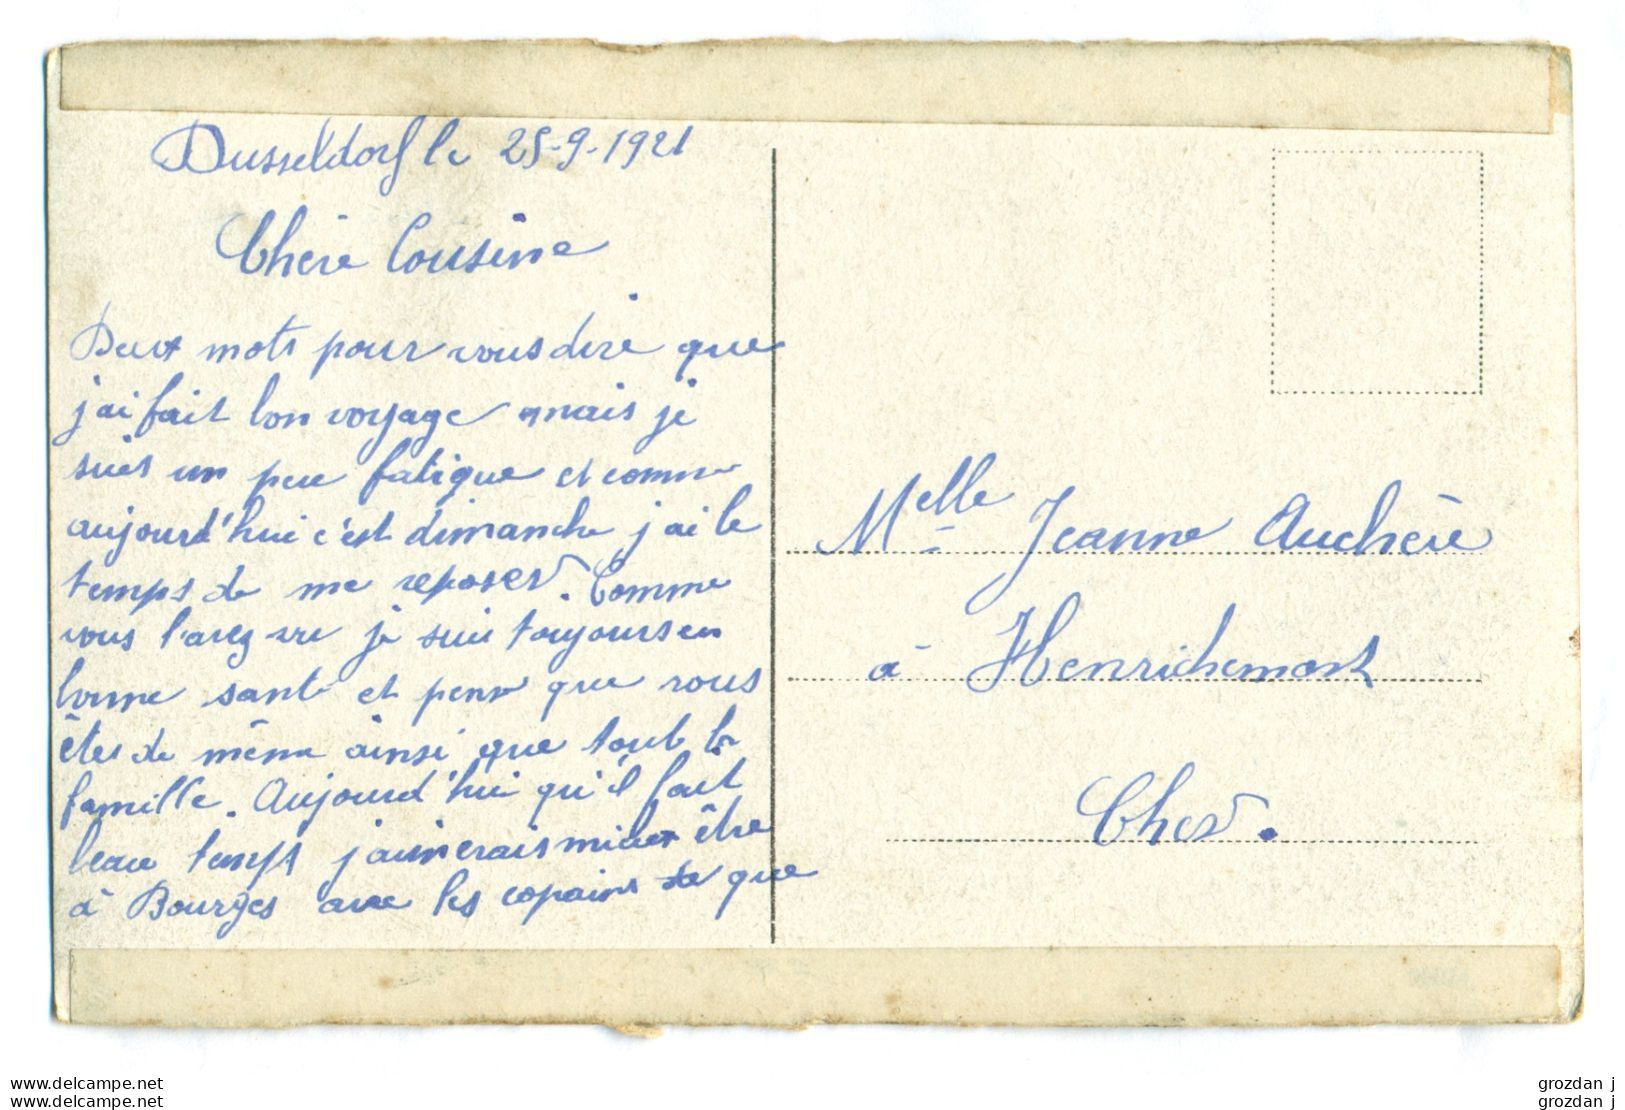 Dusseldorf le 25-9-1921
Chère Cousine
Deux mots pour vous dire que
j'ai fait bon voyage mais je
suis un peu fatigue et comme
aujourd'hui c'est dimanche j'ai le
temps de me reposer. Comme
vous l'avez vu je suis toujours en
bonne sante et pense que vous
êtes de même ainsi que toute la
famille. Aujourd'hui qu'il fait
beau temps j'aimerais mieux être
à Bourges avec les copains de que
Melle Jeanne Auchère
à Henrichemont
Cher.
www.delcampe.net
www.delcampe.net
grozdan j
grozdan j